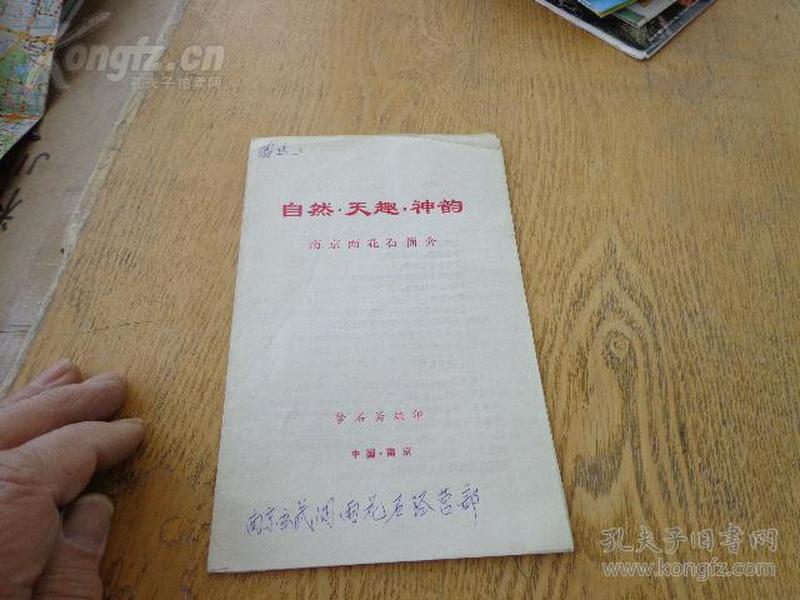 Kongfz.cn
孔夫子旧书网
自然·天趣·神韵
南京雨花石简介
中国·南京
南京 民间雨花石经营部
孔夫子旧书网
www.kongfz.com